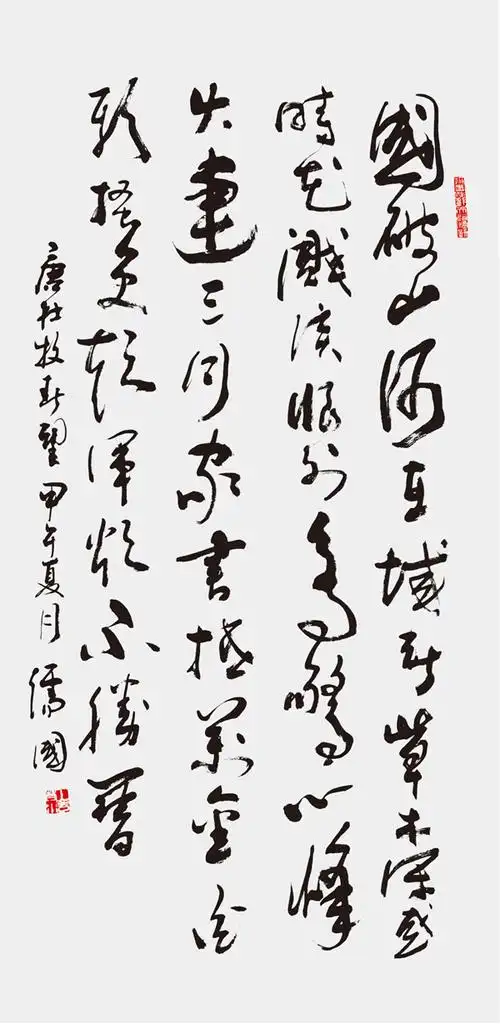 國破山河在城春草木深感
時花濺淚恨別鳥驚心烽
火連三月家書抵萬金白
頭搔更短渾欲不勝簪
唐杜牧春望甲午夏月儒國